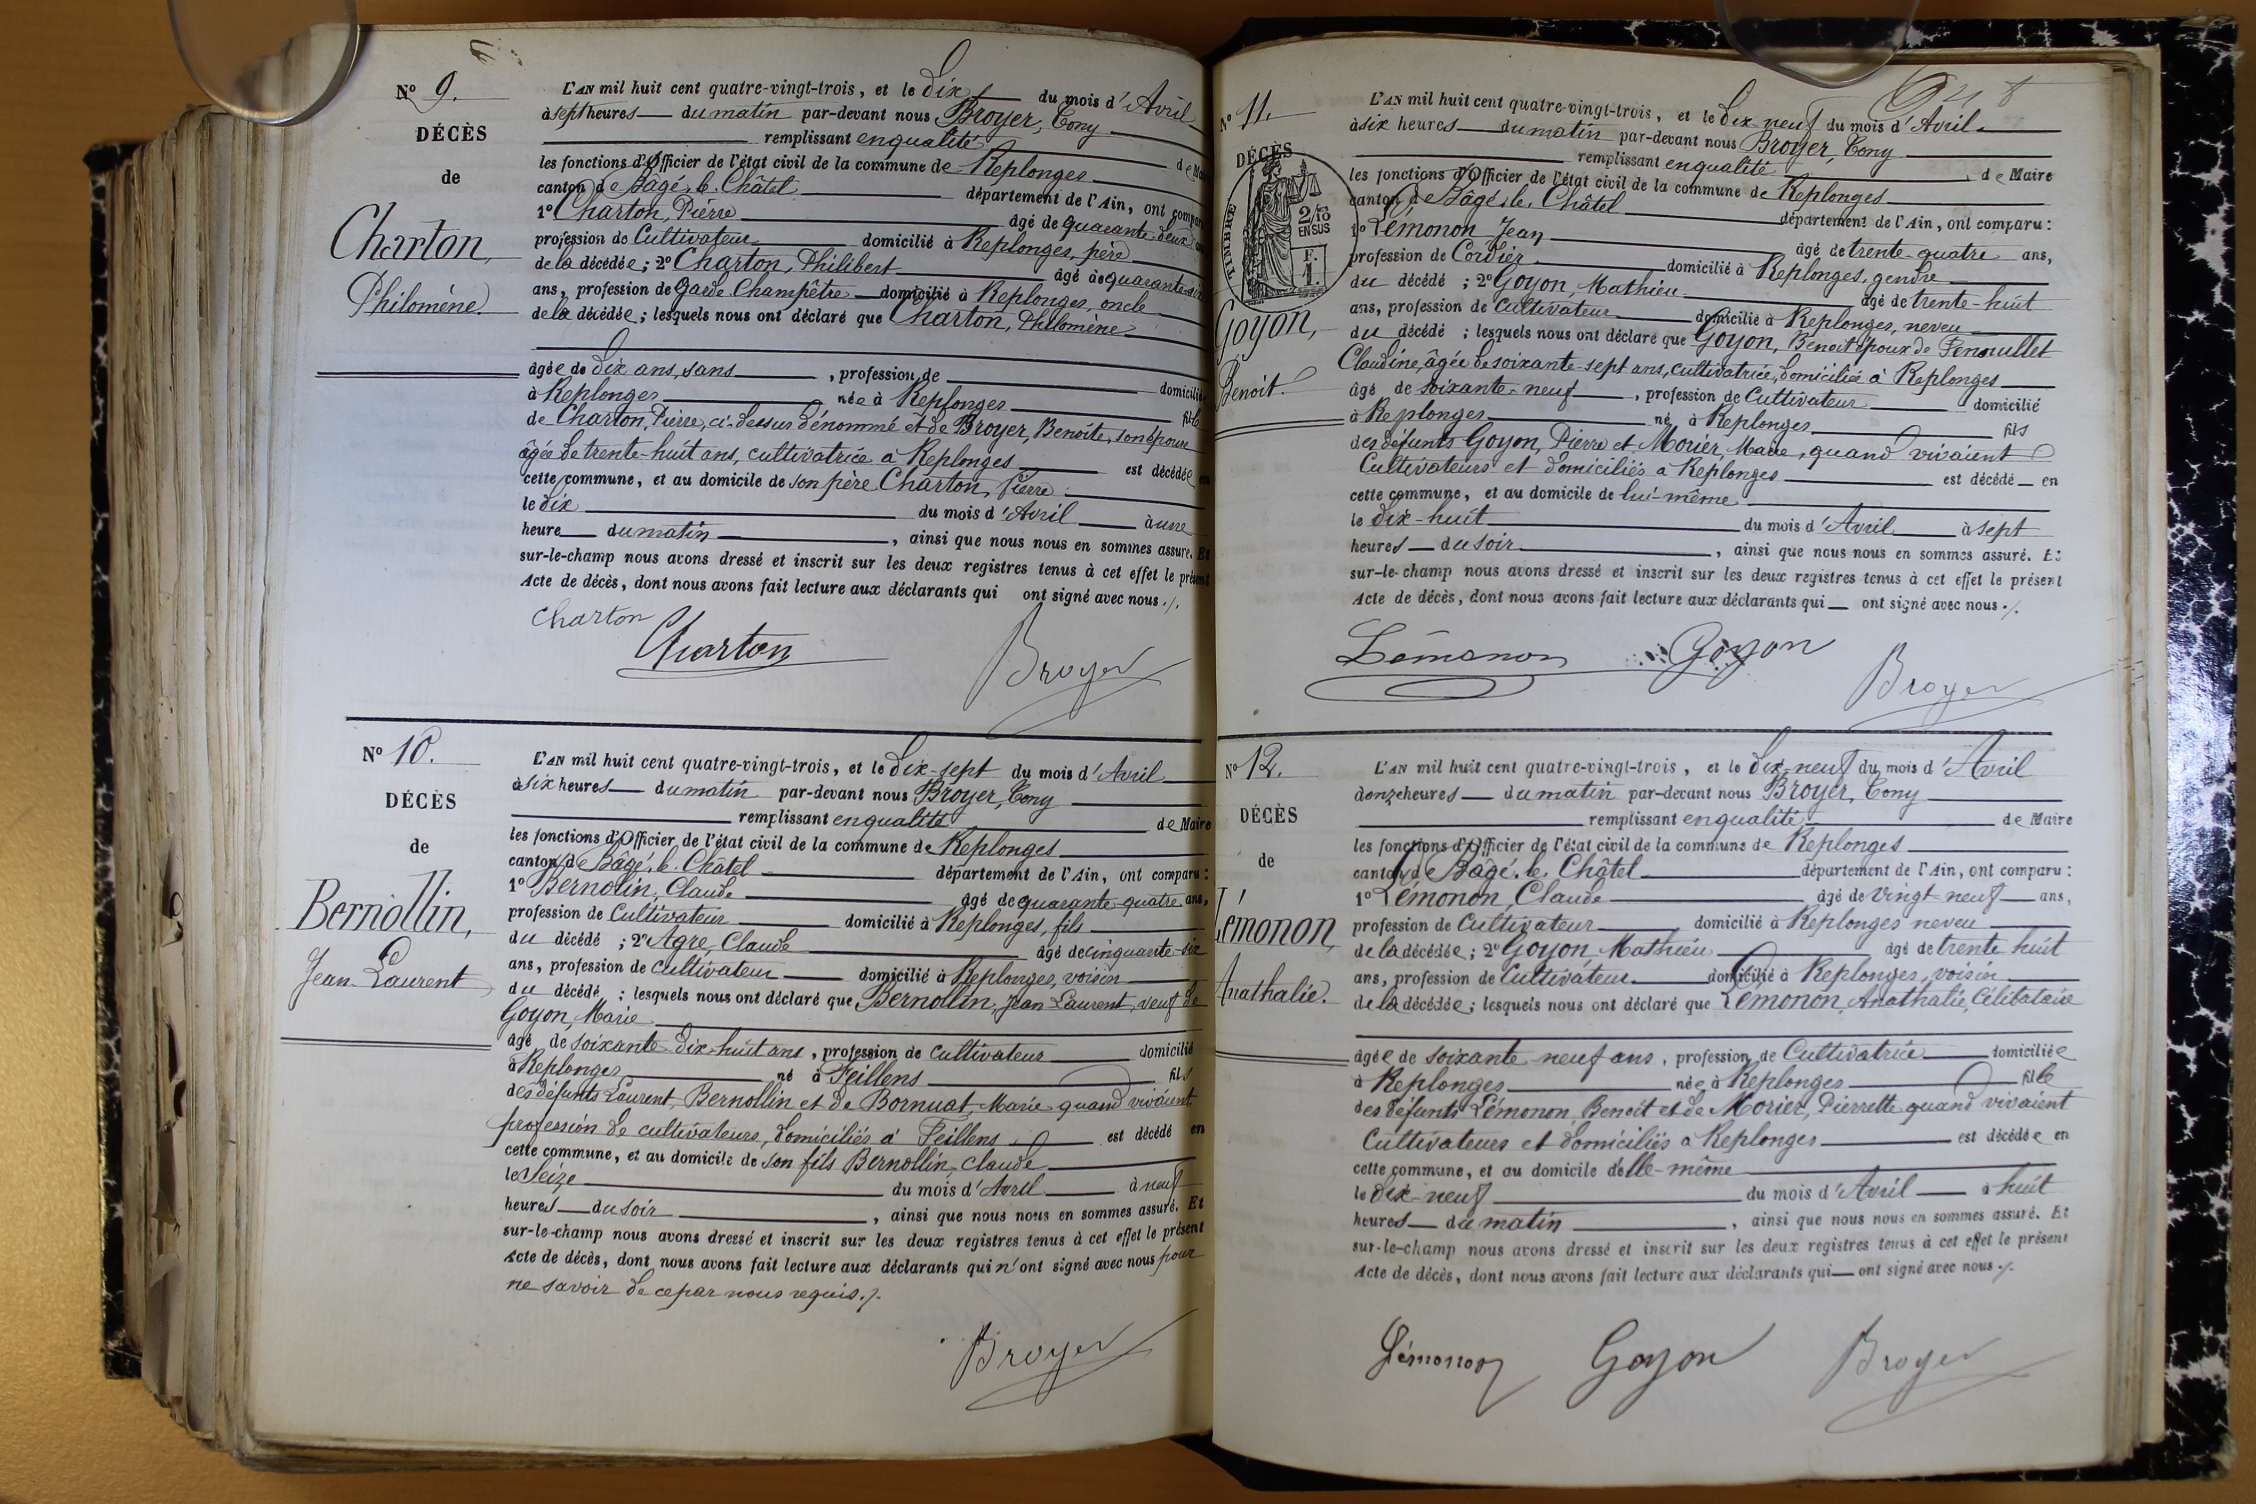 Nº 9.
DÉCÈS
de
Charton,
Philomène.
L'AN mil huit cent quatre-vingt-trois, et le Dix du mois d'Avril
à sept heures du matin par-devant nous Broyer, Tony
remplissant en qualité de Maire
les fonctions d'Officier de l'état civil de la commune de Replonges
canton de Bâgé-le-Châtel département de l'Ain, ont comparu
1º Charton, Pierre âgé de quarante-deux ans
profession de Cultivateur domicilié à Replonges, père
de la décédée; 2º Charton, Philibert âgé de quarante-six
ans, profession de Garde Champêtre domicilié à Replonges, oncle
de la décédée; lesquels nous ont déclaré que Charton, Philomène
âgée de Dix ans, sans, profession de domiciliée
à Replonges née à Replonges fille
de Charton, Pierre, ci-dessus dénommé et de Broyer, Benoîte, son épouse
âgée de trente-huit ans, cultivatrice à Replonges est décédée en
cette commune, et au domicile de son père Charton, Pierre
le dix du mois d'Avril à une
heure du matin, ainsi que nous nous en sommes assuré. Et
sur-le-champ nous avons dressé et inscrit sur les deux registres tenus à cet effet le présent
Acte de décès, dont nous avons fait lecture aux déclarants qui ont signé avec nous ./.
Charton
Charton
Broyer
Nº 10.
DÉCÈS
de
Bernollin,
Jean-Laurent
L'AN mil huit cent quatre-vingt-trois, et le Dix-sept du mois d'Avril
à six heures du matin par-devant nous Broyer, Tony
remplissant en qualité de Maire
les fonctions d'Officier de l'état civil de la commune de Replonges
canton de Bâgé-le-Châtel département de l'Ain, ont comparu :
1º Bernolin, Claude âgé de quarante-quatre ans,
profession de Cultivateur domicilié à Replonges, fils
du décédé ; 2º Agre, Claude âgé de cinquante-six
ans, profession de cultivateur domicilié à Replonges, voisin
du décédé ; lesquels nous ont déclaré que Bernollin, Jean-Laurent, veuf de
Goyon, Marie
âgé de soixante-dix-huit ans, profession de cultivateur domicilié
à Replonges né à Feillens fils
des défunts Laurent, Bernollin et de Bornuat, Marie quand vivaient
profession de cultivateurs, domiciliés à Feillens est décédé en
cette commune, et au domicile de son fils Bernollin, Claude
le Seize du mois d'Avril à neuf
heures du soir, ainsi que nous nous en sommes assuré. Et
sur-le-champ nous avons dressé et inscrit sur les deux registres tenus à cet effet le présent
Acte de décès, dont nous avons fait lecture aux déclarants qui n'ont signé avec nous pour
ne savoir de ce par nous requis ./.
Broyer
Nº 11.
DÉCÈS
TIMBRE
2/10
EN SUS
F.
1.
Goyon,
Benoit.
L'AN mil huit cent quatre-vingt-trois, et le Dix-neuf du mois d'Avril
à six heures du matin par-devant nous Broyer, Tony
remplissant en qualité de Maire
les fonctions d'Officier de l'état civil de la commune de Replonges
canton de Bâgé-le-Châtel département de l'Ain, ont comparu :
1º Lémonon Jean âgé de trente-quatre ans,
profession de Cordier domicilié à Replonges, gendre
du décédé ; 2º Goyon, Mathieu âgé de trente-huit
ans, profession de Cultivateur domicilié à Replonges, neveu
du décédé ; lesquels nous ont déclaré que Goyon, Benoit époux de Penouillet
Claudine, âgée de soixante-sept ans, cultivatrice, domiciliée à Replonges
âgé de soixante-neuf, profession de Cultivateur domicilié
à Replonges né à Replonges fils
des défunts Goyon, Pierre et Morier, Marie, quand vivaient
Cultivateurs et domiciliés à Replonges est décédé en
cette commune, et au domicile de lui-même
le dix-huit du mois d'Avril à sept
heures du soir, ainsi que nous nous en sommes assuré. Et
sur-le-champ nous avons dressé et inscrit sur les deux registres tenus à cet effet le présent
Acte de décès, dont nous avons fait lecture aux déclarants qui ont signé avec nous ./.
Lémonon
Goyon
Broyer
Nº 12.
DÉCÈS
de
Lémonon,
Anathalie.
L'AN mil huit cent quatre-vingt-trois, et le Dix-neuf du mois d'Avril
à onze heures du matin par-devant nous Broyer, Tony
remplissant en qualité de Maire
les fonctions d'Officier de l'état civil de la commune de Replonges
canton de Bâgé-le-Châtel département de l'Ain, ont comparu :
1º Lémonon, Claude âgé de vingt-neuf ans,
profession de Cultivateur domicilié à Replonges neveu
de la décédée; 2º Goyon, Mathieu âgé de trente huit
ans, profession de Cultivateur domicilié à Replonges, voisin
de la décédée; lesquels nous ont déclaré que Lémonon, Anathalie, Célibataire
âgée de soixante-neuf ans, profession de Cultivatrice domiciliée
à Replonges née à Replonges fille
des défunts Lémonon, Benoit et de Morier, Pierrette quand vivaient
Cultivateurs et domiciliés à Replonges est décédée en
cette commune, et au domicile d'elle-même
le dix-neuf du mois d'Avril à huit
heures du matin, ainsi que nous nous en sommes assuré. Et
sur-le-champ nous avons dressé et inscrit sur les deux registres tenus à cet effet le présent
Acte de décès, dont nous avons fait lecture aux déclarants qui ont signé avec nous ./.
Lémonon
Goyon
Broyer